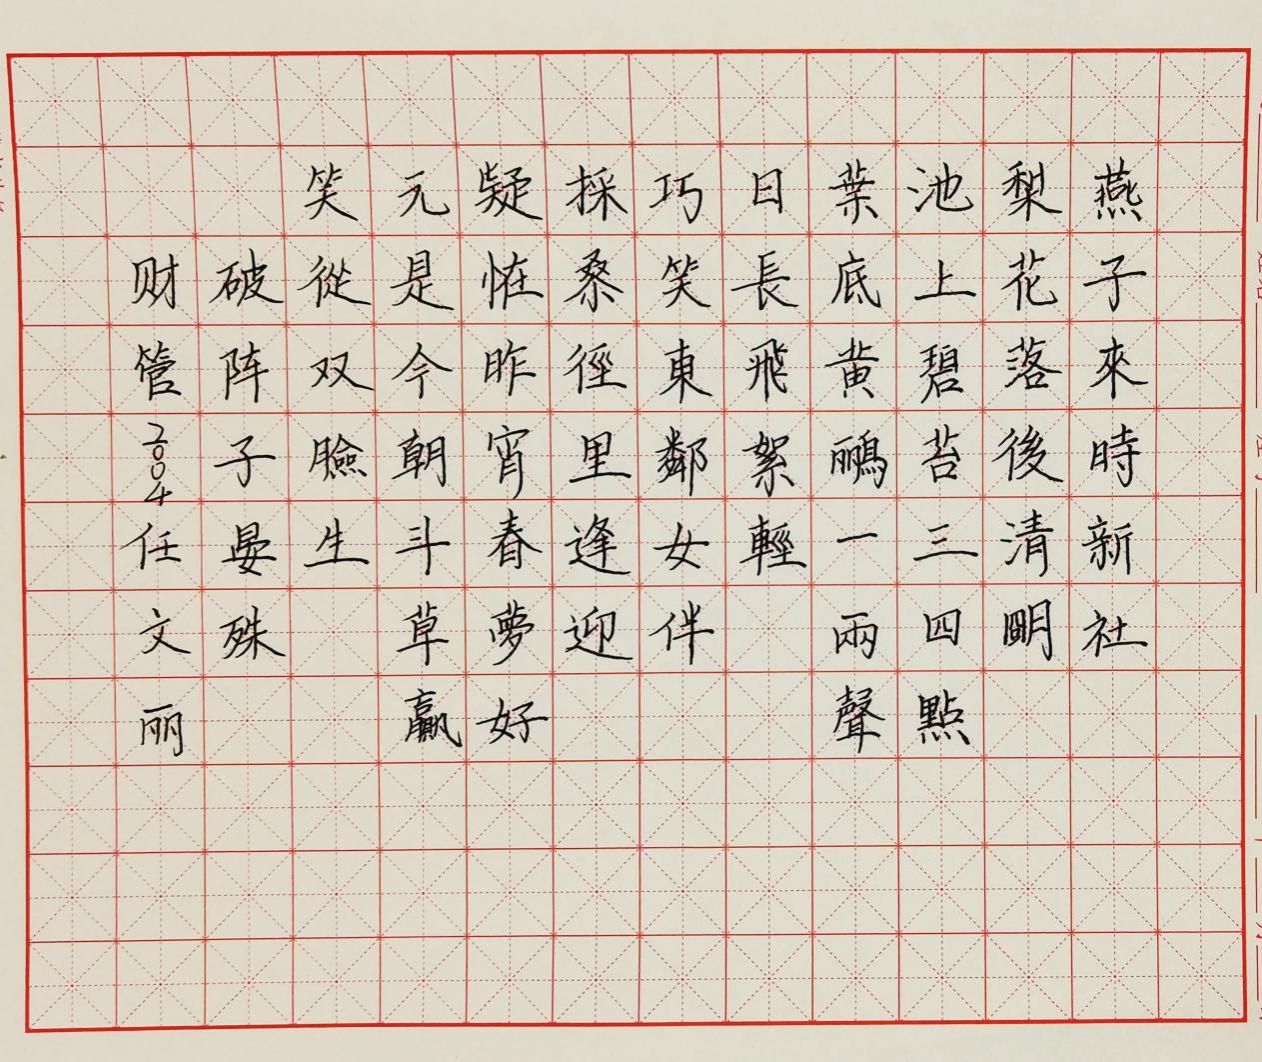 燕子來時新社
梨花落後清明
池上碧苔三四點
葉底黄鸝一兩聲
日長飛絮輕
巧笑東鄰女伴
採桑徑里逢迎
疑怪昨宵春夢好
元是今朝斗草贏
笑從双臉生
破阵子晏殊
财管2004任文丽